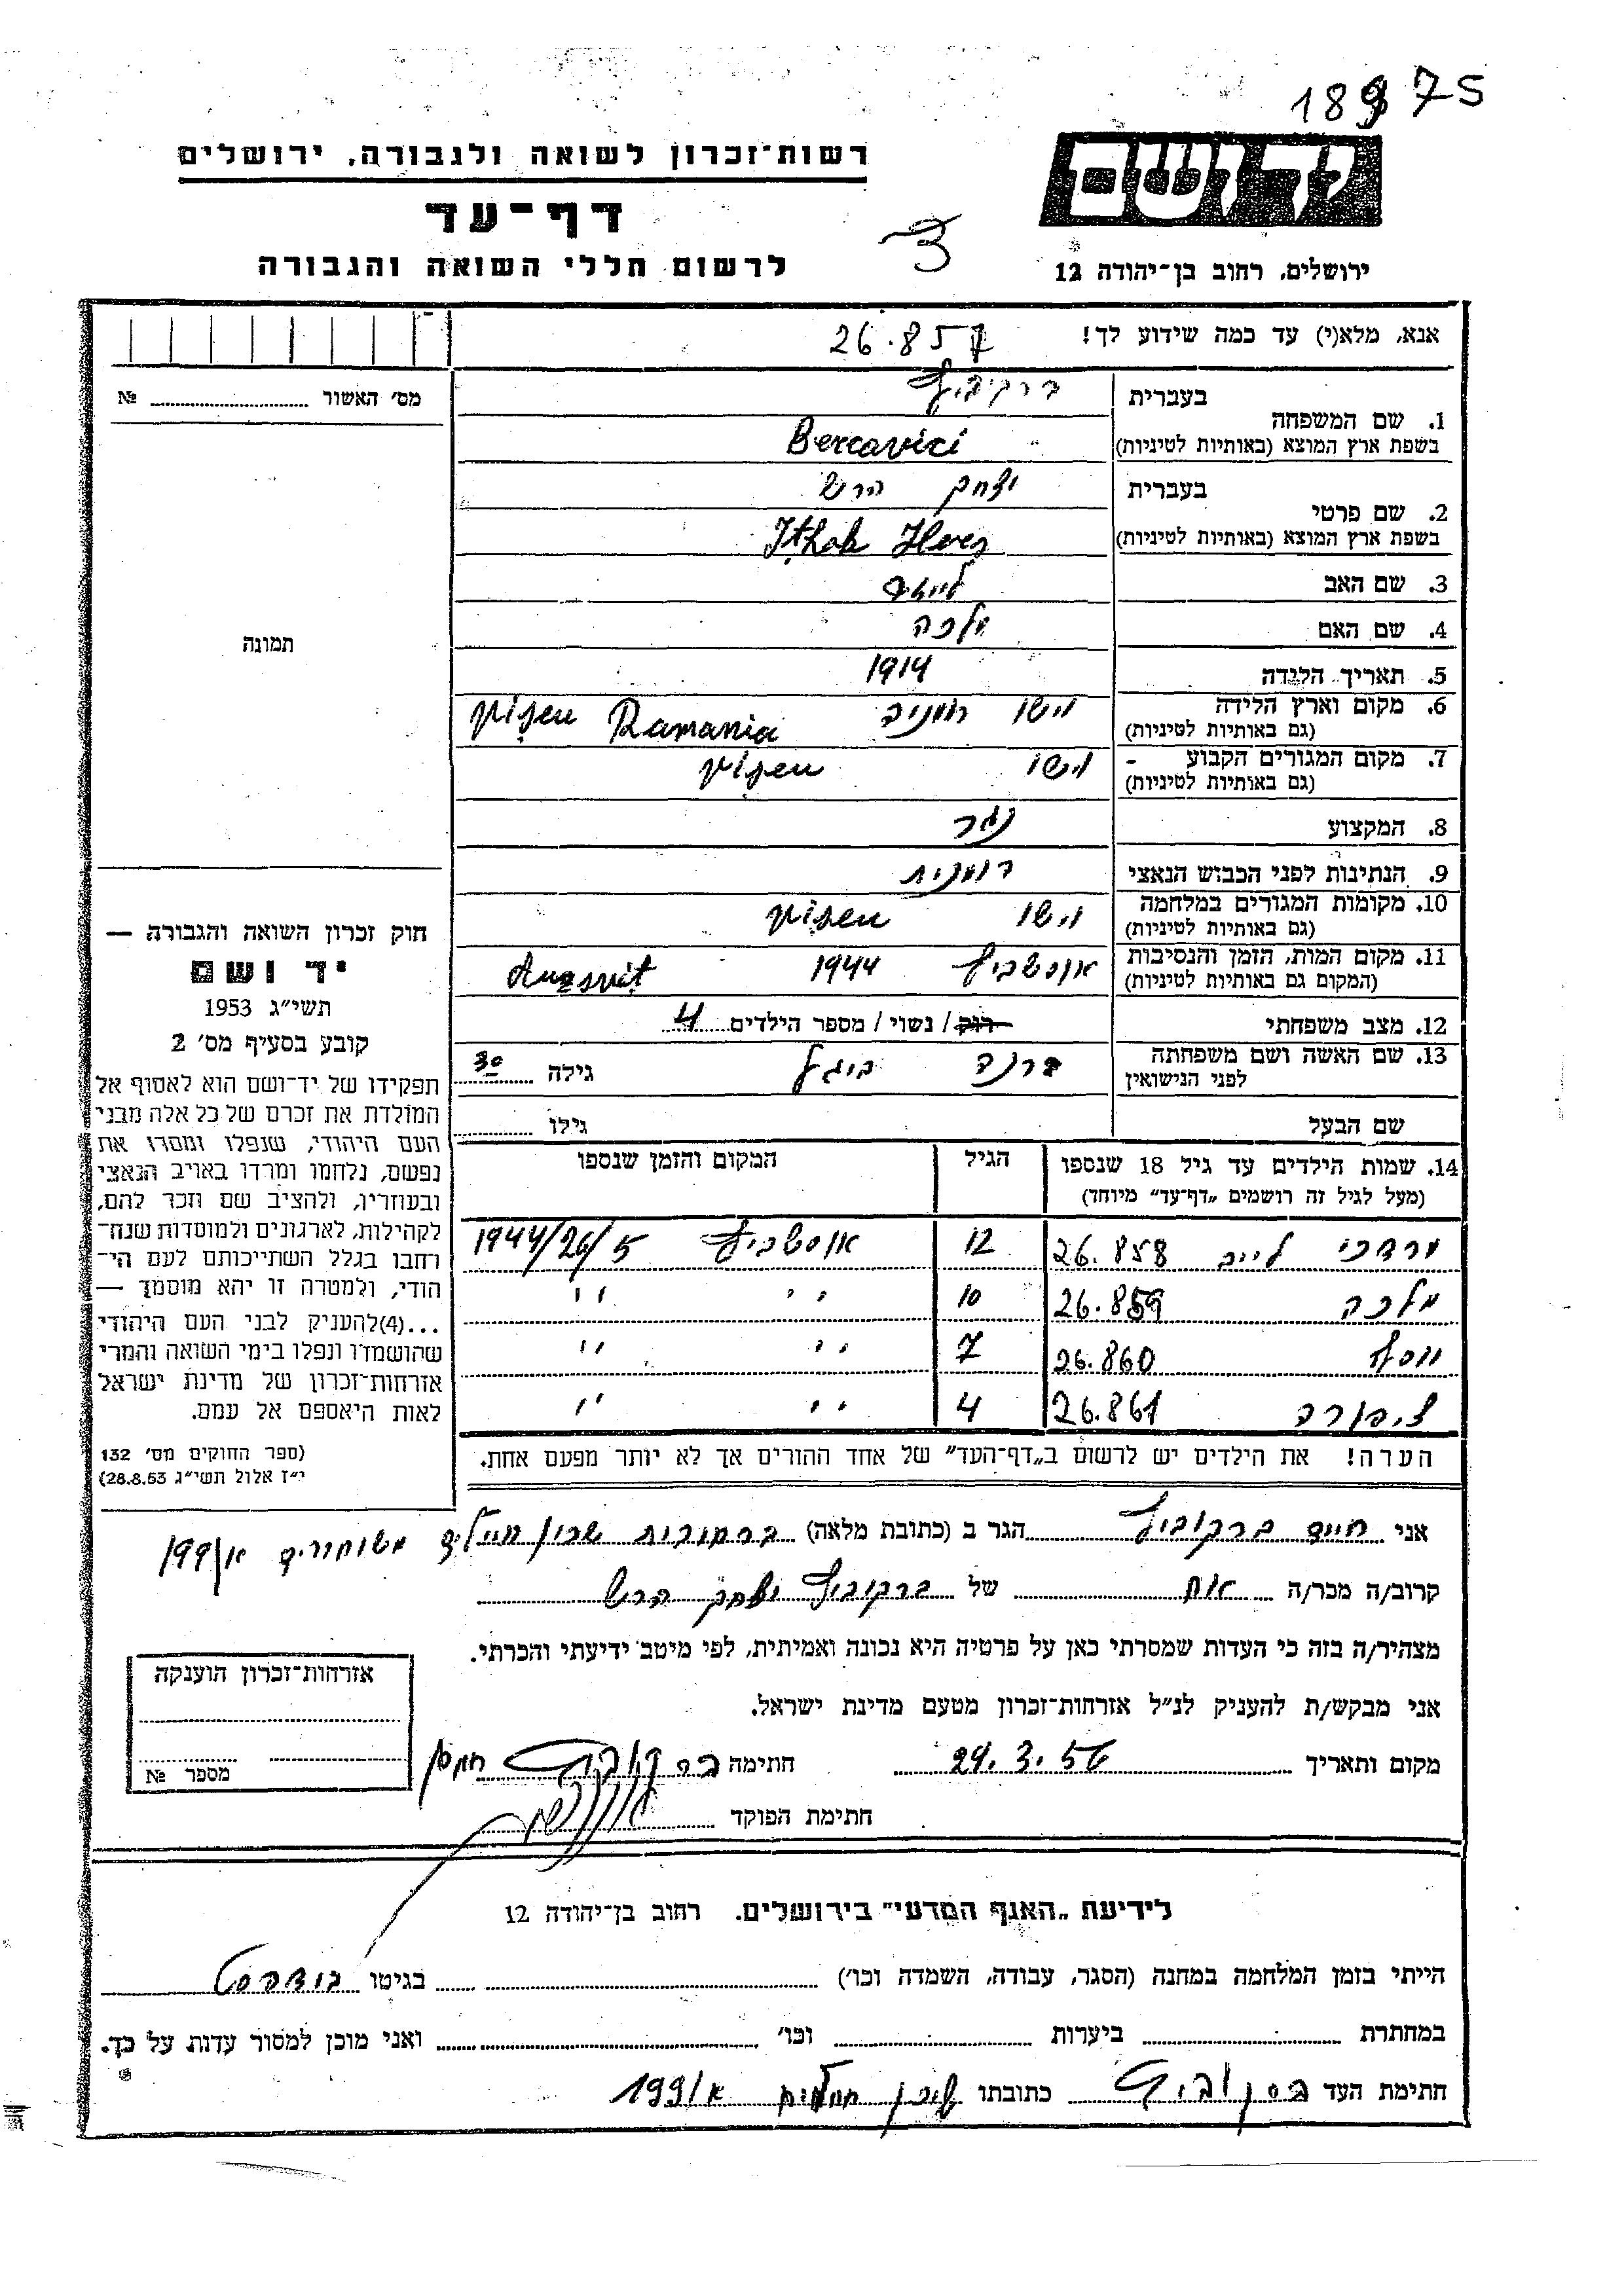 18975
רשות־זכרון לשואה ולגבורה, ירושלים
דף־עד
לרשום חללי השואה והגבורה
יד ושם
ירושלים, רחוב בן־יהודה 12
אנא, מלא(י) עד כמה שידוע לך!
26.857
1. שם המשפחה
בעברית
ברקוביץ
בשפת ארץ המוצא (באותיות לטיניות)
Bercavici
2. שם פרטי
בעברית
יצחק הרש
בשפת ארץ המוצא (באותיות לטיניות)
Ithak Hers
3. שם האב
לייב
4. שם האם
מלכה
5. תאריך הלידה
1914
6. מקום וארץ הלידה
(גם באותיות לטיניות)
וישו רומניה Vişeu Ramania
7. מקום המגורים הקבוע
(גם באותיות לטיניות)
וישו Vişeu
8. המקצוע
נגר
9. הנתינות לפני הכבוש הנאצי
רומנית
10. מקומות המגורים במלחמה
(גם באותיות לטיניות)
וישו Vişeu
11. מקום המות, הזמן והנסיבות
(המקום גם באותיות לטיניות)
אושביץ 1944
12. מצב משפחתי
רוק / נשוי / מספר הילדים 4
13. שם האשה ושם משפחתה
לפני הנישואין
ברנה גילה 30
שם הבעל גילו
14. שמות הילדים עד גיל 18 שנספו
(מעל לגיל זה רושמים „דף־עד” מיוחד)
הגיל
המקום והזמן שנספו
מרדכי לייב 26.858 12 אושביץ 1944/26/5
מלכה 26.859 10 ״ ״
יוסף 26.860 7 ״ ״
ציפורה 26.861 4 ״ ״
הערה! את הילדים יש לרשום ב„דף־העד” של אחד ההורים אך לא יותר מפעם אחת.
מס׳ האשור № 
תמונה
חוק זכרון השואה והגבורה —
יד ושם
תשי״ג 1953
קובע בסעיף מס׳ 2
תפקידו של יד־ושם הוא לאסוף אל
המולדת את זכרם של כל אלה מבני
העם היהודי, שנפלו ומסרו את
נפשם, נלחמו ומרדו באויב הנאצי
ובעוזריו, ולהציב שם וזכר להם,
לקהילות, לארגונים ולמוסדות שנח־
רחבו בגלל השתייכותם לעם הי־
הודי, ולמטרה זו יהא מוסמך —
...(4)להעניק לבני העם היהודי
שהושמדו ונפלו בימי השואה והמרי
אזרחות־זכרון של מדינת ישראל
לאות היאספם אל עמם.
(ספר החוקים מס׳ 132
י״ז אלול תשי״ג 28.8.53)
אני חיים ברקוביץ הגר ב (כתובת מלאה) ברחובות שכון חיילים משוחררים א/199
קרוב/ה מכר/ה אח של ברקוביץ יצחק הרש
מצהיר/ה בזה כי העדות שמסרתי כאן על פרטיה היא נכונה ואמיתית, לפי מיטב ידיעתי והכרתי.
אני מבקש/ת להעניק לנ״ל אזרחות־זכרון מטעם מדינת ישראל.
מקום ותאריך 29.3.56 חתימה ברקוביץ
חתימת הפוקד
אזרחות־זכרון הוענקה
מספר №
לידיעת „האגף המדעי” בירושלים. רחוב בן־יהודה 12
הייתי בזמן המלחמה במחנה (הסגר, עבודה, השמדה וכו׳) בגיטו בודפסט
במחתרת ביערות וכו׳ ואני מוכן למסור עדות על כך.
חתימת העד ברקוביץ כתובתו שיכון א/199